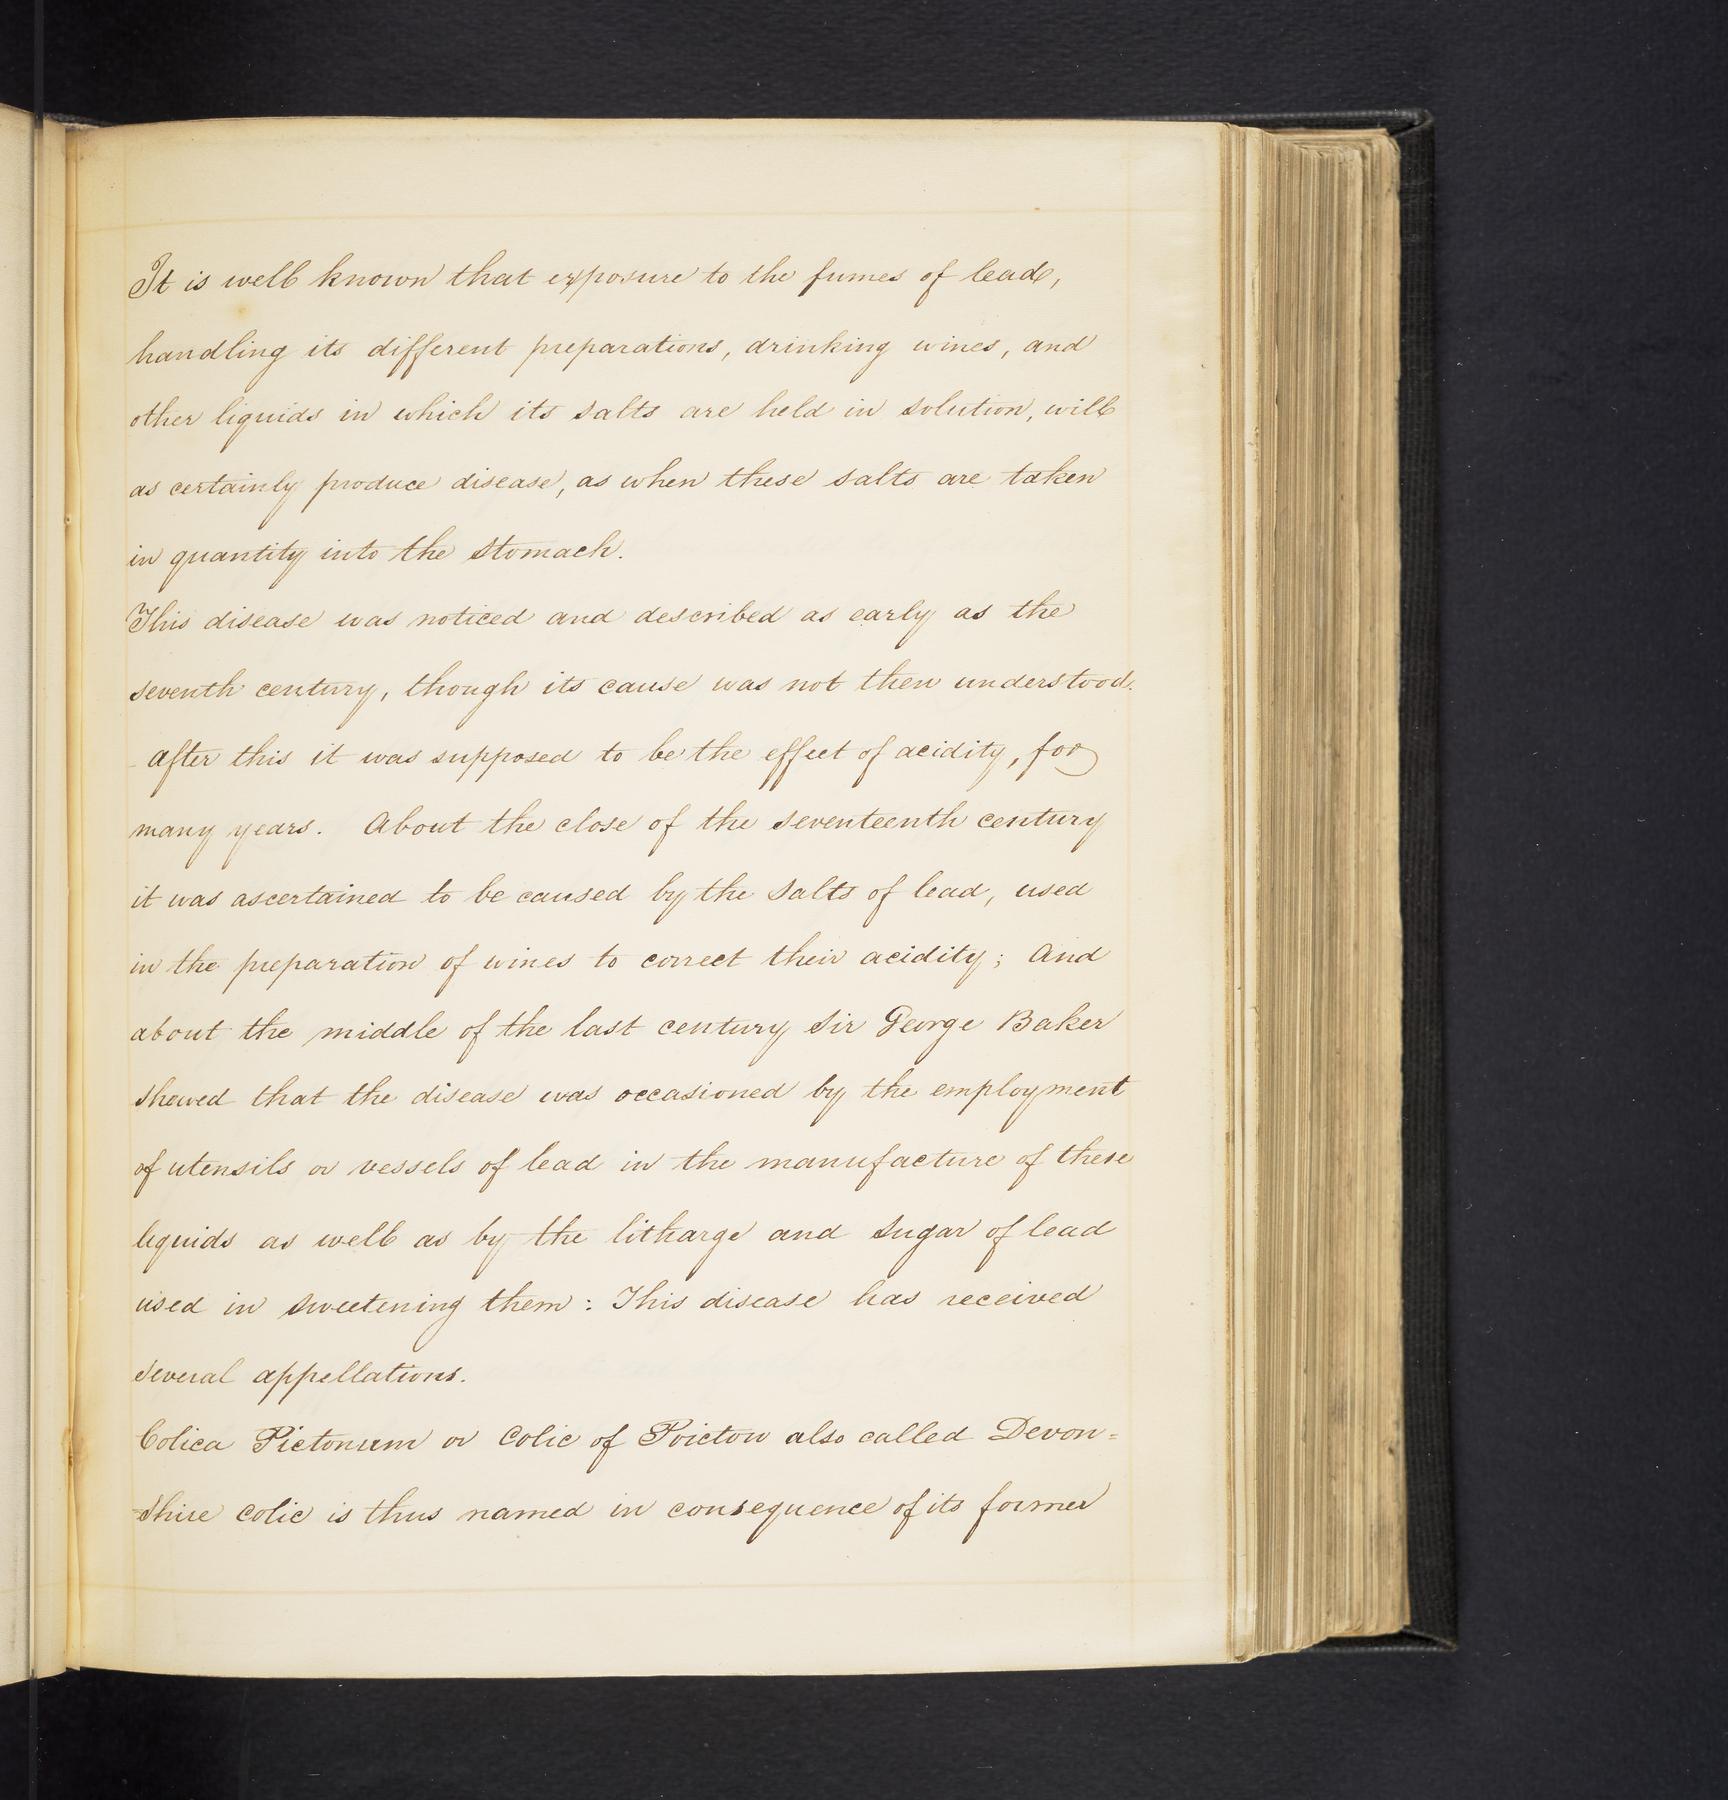 It is well known that exposure to the fumes of lead,
handling its different preparations, drinking wines, and
other liquids in which its salts are held in solution, will
as certainly produce disease, as when these salts are taken
in quantity into the stomach.
This disease was noticed and described as early as the
seventh century, though its cause was not then understood.
After this it was supposed to be the effect of acidity, for
many years. About the close of the seventeenth century
it was ascertained to be caused by the salts of lead, used
in the preparation of wines to correct their acidity; And
about the middle of the last century Sir George Baker
showed that the disease was occasioned by the employment
of utensils or vessels of lead in the manufacture of these
liquids as well as by the litharge and sugar of lead
used in sweetening them: This disease has received
several appellations.
Colica Pictonum or Colic of Poictou also called Devon=
=shire colic is thus named in consequence of its former